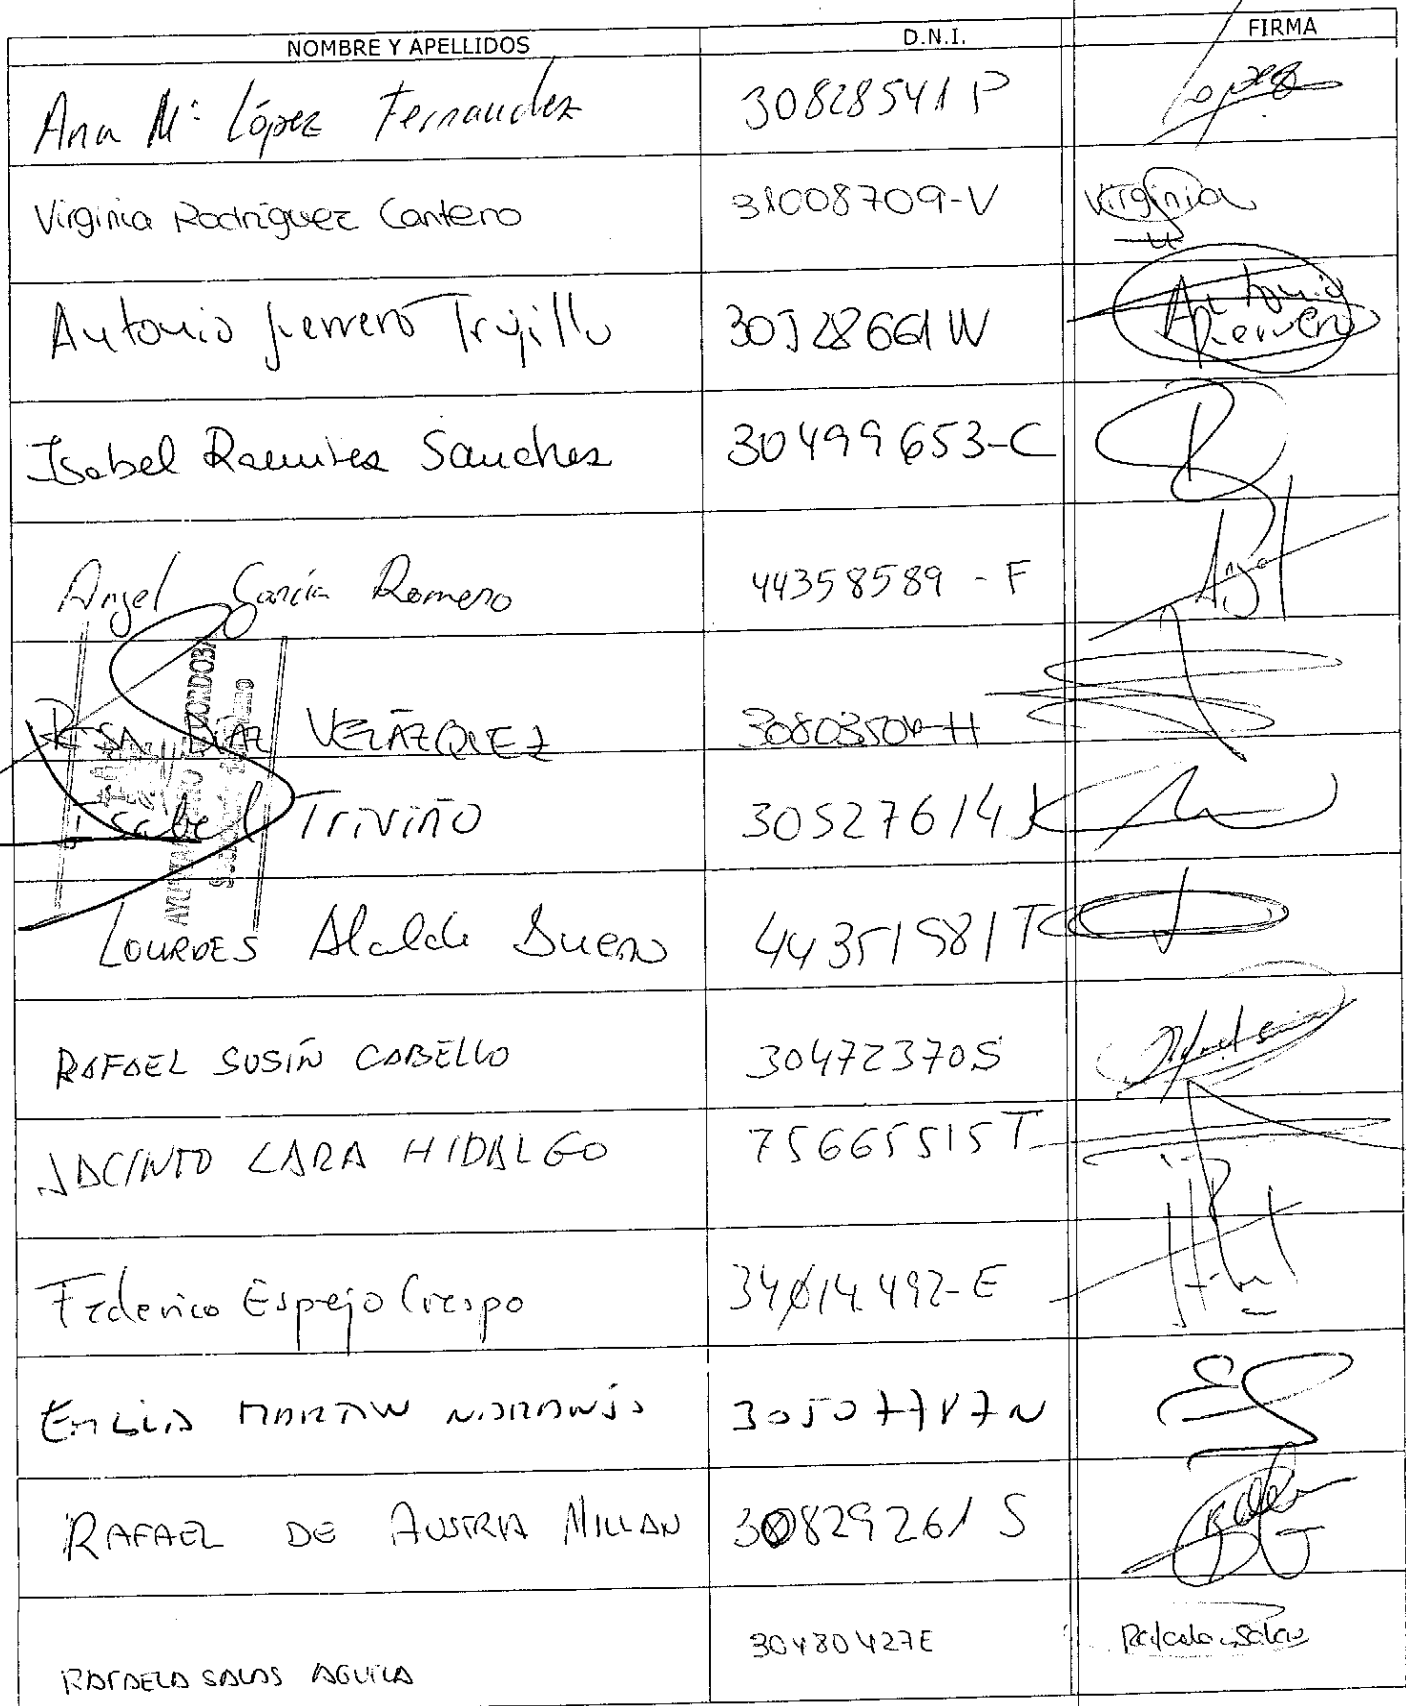 NOMBRE Y APELLIDOS D.N.I. FIRMA
Ana Mª López Fernandez 30828541 P Lopez
Virginia Rodríguez Cantero 31008709-V Virginia
Antonio Herrero Trujillo 30528661W Antonio Herrero
Isabel Ramirez Sanchez 30499653-C
Angel García Romero 44358589 - F Angel
ROSA DÍAZ VELÁZQUEZ
Isabel Triviño 30527614J
LOURDES Alcalde Bueno 44351981T
RAFAEL SUSÍN CABELLO 30472370S Rafael Susín
JACINTO LARA HIDALGO 75665515T
Federico Espejo Crespo 34014.492-E
EMILIA MARTIN NARANJO
RAFAEL DE AUSTRIA MILLAN 30829261 S
RAFAELA SALAS AGUILA 30480427E Rafaela Salas
AYUNTAMIENTO CORDOBA